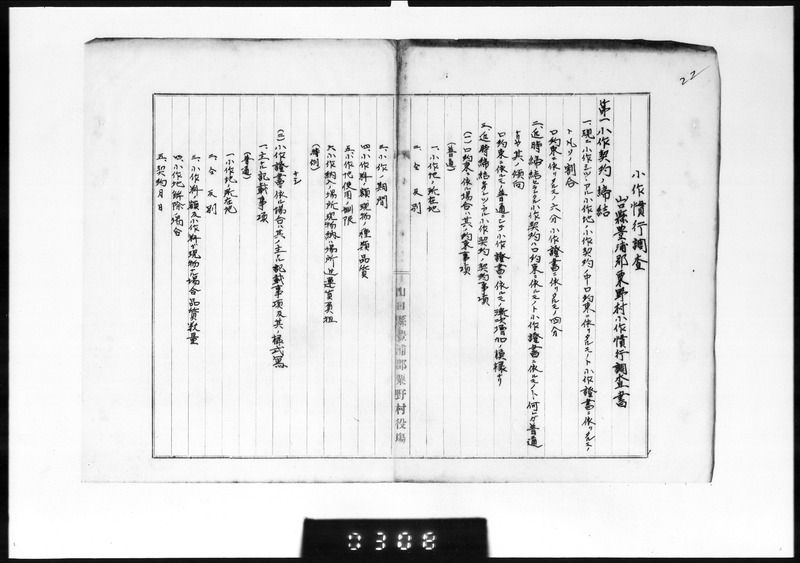 22
小作慣行調査
山口縣豊浦郡粟野村小作慣行調査書
第一 小作契約ノ締結
一、現ニ小作シツヽアル小作地ノ小作契約ノ中口約束ニ依リタルモノト小作證書ニ依リタルモノ
ト凡ソノ割合
口約束ニ依リタルモノ六分 小作證書ニ依リタルモノ四分
二、近時締結セラルヽ小作契約ハ口約束ニ依ルモノト小作證書ニ依ルモノト何レガ普通
ナリヤ其ノ傾向
口約束ニ依ルモノ普通ニシテ小作證書ニ依ルモノ漸次増加ノ模様ナリ
三、近時締結セラレツヽアル小作契約ノ契約事項
(一)口約束ニ依ル場合ハ其ノ約束事項
(普通)
一、小作地ノ所在地
二、仝 反別
山口縣豊浦郡粟野村役場
三、小作ノ期間
四、小作料ノ額現物ノ種類品質
五、小作地使用ノ制限
六、小作納入ノ場所現物納ノ場所迄運賃負担
(特例)
ナシ
(二)小作證書ニ依ル場合ハ其ノ主ナル記載事項及其ノ様式寫
一、主ナル記載事項
(普通)
一、小作地ノ所在地
二、仝 反別
三、小作料ノ額及小作料ガ現物ナル場合品質数量
四、小作地解除ノ場合
五、契約月日
0308